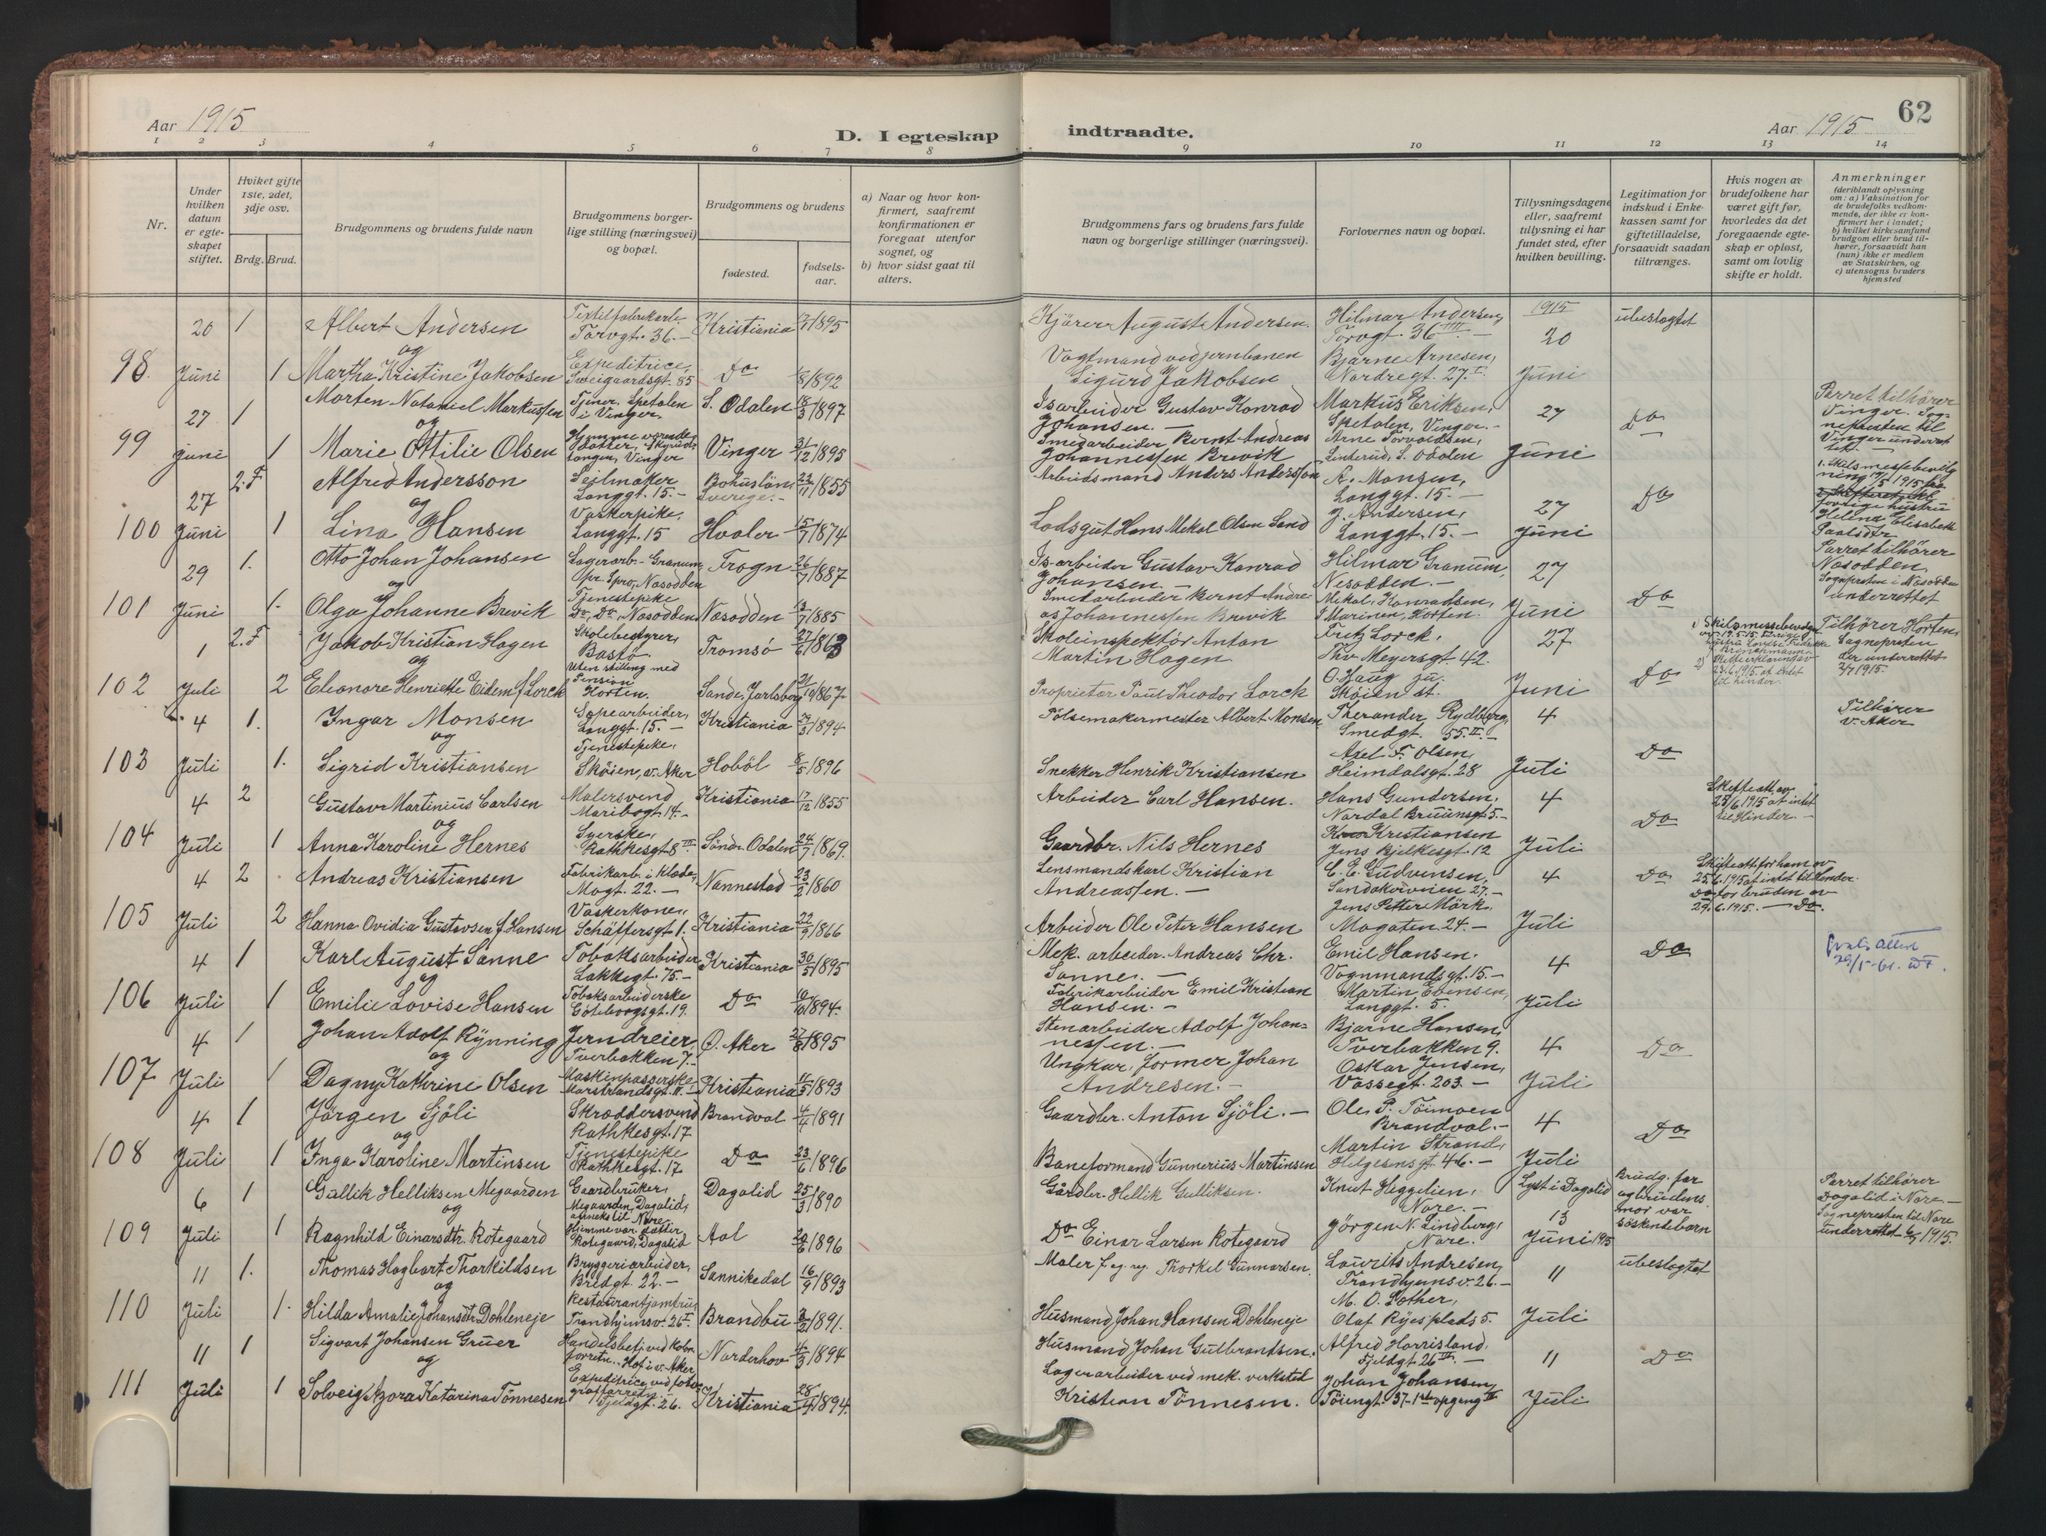 Aar 1915
D. I egteskap indtraadte.
Aar 1915
62
1 2 3 4 5 6 7 8 9 10 11 12 13 14
Nr.
Under hvilken datum er egteskapet stiftet.
Hvilket gifte 1ste, 2det, 3dje osv.
Brdg. Brud.
Brudgommens og brudens fulde navn
Brudgommens borgerlige stilling (næringsvei) og bopæl.
Brudgommens og brudens
fødested. fødselsaar.
a) Naar og hvor konfirmert, saafremt konfirmationen er foregaat utenfor sognet, og
b) hvor sidst gaat til alters.
Brudgommens fars og brudens fars fulde navn og borgerlige stillinger (næringsvei).
Forlovernes navn og bopæl.
Tillysningsdagene eller, saafremt tillysning ei har fundet sted, efter hvilken bevilling.
Legitimation for indskud i Enkekassen samt for giftetilladelse, forsaavidt saadan tiltrænges.
Hvis nogen av brudefolkene har været gift før, hvorledes da det foregaaende egteskap er opløst, samt om lovlig skifte er holdt.
Anmerkninger (deriblandt oplysning om: a) Vaksination for de brudefolks vedkommende, der ikke er konfirmert her i landet; b) hvilket kirkesamfund brudgom eller brud tilhører, forsaavidt han (hun) ikke er medlem av Statskirken, og c) utensogns bruders hjemsted
98. 20 Juni 1 Albert Andersen Textilfabrikarb. Torvgt. 36.- Kristiania 1895 Kjörer August Andersen. Hilmar Andersen, Torvgt. 36 1915 20 ubeslegtet
og
1 Martha Kristine Jakobsen Expeditrice, Sweigaardsgt. 85 Do 1892 Vogtmand ved jernbanen Sigurd Jakobsen Bjarne Arnesen, Nordregt. 27 Juni
99 27 juni 1 Morten Nataniel Markussen Tjener, Spetalen i Vinger. S. Odalen 1897 Isarbeider Gustav Konrad Johansen.- Markus Eriksen, Spetalen, Vinger.- 27 Do Parret tilhører Vinger. Sogneprесten til Vinger underrettet.
og
1 Marie Ottilie Olsen Vinger 31/12 1895 Smedarbeider Bernt Andreas Johannessen Brevik Arne Torvaldsen, S. Odalen Juni
100 27 Juni 2. F Alfred Andersson Seilmaker Langgt. 15.- Bohuslän, Sverige. 22/11 1855 Arbeidsmand Anders Andersson A. Monsen, Langgt. 15.- 27 Do
og
1 Lina Hansen Vaskerpike, Langgt. 15 Hvaler 15/7 1874 Lodsgut Hans Mikal Olsen Sand J. Andersen, Langgt. 15.- Juni
101 29 Juni 1. Otto Johan Johansen Lagerarb. Granum, Næsodden Frogn 26/7 1887 Is-arbeider Gustav Konrad Johansen.- Hilmar Granum, Nesodden.- 27 Do Parret tilhører Næsodden. Sognepresten i Næsodden underrettet
og
1. Olga Johanne Brevik Tjenestepike Do, Do, Næsodden Næsodden 1885 Smedarbeider Bernt Andreas Johannessen Brevik Mikal Konradsen, Marinen, Horten. Juni
102 1 Juli 2. F Jakob Kristian Hagen Skolebestyrer, Bastø Tromsø 27/6 1863 Skoleinspektör Anton Martin Hagen Fritz Lorck, Thv. Meyersgt. 42. 27 Do Tilhører Horten, Sognepresten der underrettet 2/7 1915.
og
2 Eleonore Henriette Eidem f. Lorck Uten stilling med Pension Horten. Sande, Jarlsberg 1867 Proprietær Paul Theodor Lorck O. Haug ju. Skøien st. Juni
103 4 Juli 1. Ingar Monsen Sæpearbeider, Langgt. 15.- Kristiania 29/3 1894 Pölsemakermester Albert Monsen Therander Rydberg, Smedgt. 55.II.- 4 Do Tilhører v. Aker
og
1. Sigrid Kristiansen Tjenestepike, Skøien, v. Aker Hobøl 8/5 1896 Snekker Henrik Kristiansen Axel F. Olsen, Heimdalsgt. 28 Juli
104 4 Juli 2 Gustav Martinius Carlsen Malersvend Maribogt. 14.- Kristiania 17/12 1855 Arbeider Carl Hansen. Hans Gundersen, Nordal Bruunsgt 5.- 4 Do Skifteatt. av 25/6 1915 at intet til Hinder.-
og
1 Anna Karoline Hernes Syerske, Rathkesgt 8 III Söndr Odalen 24/7 1869. Gaardbr. Nils Hernes Kristiansen Jens Bjelkesgt. 12 Juli
105 4 Juli 2 Andreas Kristiansen Fabrikarb. i Klade, Mogt. 22.- Nannestad 23/2 1860 Lensmandskarl Kristian Andreassen.- E. E. Gudvensen, Sandakerveien 27.- 4 Do Skifteatt for ham av 25.6.1915 at intet til Hinder. Do for bruden av 29.6.1915.- Do.
2 Hanna Ovidia Gustavsen f. Hansen Vaskerkone, Schäffersgt 1. Kristiania 22/9 1866 Arbeider Ole Peter Hansen Jens Petter Mörk, Mogaten 24.- Juli
106 4 Juli 1 Karl August Sanne Tobaksarbeider Lakkegt. 75.- Kristiania 30/5 1895 Mek. arbeider Andreas Chr. Sanne.- Emil Hansen. Vognmandsgt. 15.- 4 Do
og
1 Emilie Lovise Hansen Tobaksarbeiderske Göteborgsgt. 19. Do 1894. Fabrikarbeider Emil Kristian Hansen.- Martin Ebensen, Langgt. 5. Juli
107 4 Juli 1 Johan Adolf Rynning Jerndreier, Tverbakken 7.- Ø. Aker 27/8 1895 Stenarbeider Adolf Johannessen.- Bjarne Hansen, Tverbakken 9. 4 Do
og
1 Dagny Kathrine Olsen Maskinpasserske, Marstrandsgt. 11.- Kristiania 11/5 1893 Ungkar, former Johan Andresen.- Oskar Jensen, Vossegt. 203.- Juli
108 4 Juli 1 Jørgen Sjöli Skræddersvend Rathkesgt. 17 Brandval 4/4 1891 Gaardbr. Anton Sjöli.- Ole P. Töimoen Brandval.- 4 Do
og
1 Inga Karoline Martinsen Tjenestepike Rathkesgt. 17 Do 23/6 1896 Baneformand Gunnerius Martinsen Martin Strand, Helgesensgt 46.- Juli
109 6 Juli 1 Gullik Helliksen Megaarden Gaardbruker, Megaarden, Dagalid, anneks til Nore Dagalid 25/3 1890 Gårdbr. Hellik Gulliksen. Knut Heggelien, Nore.- Lyst i Dagalid 13 Brudg. far og brudens mor var söskendebarn Parret tilhører Dagalid i Nore- Sognepresten til Nore underrettet 6/7 1915.
og
1 Ragnhild Einarsdtr. Rotegaard Hjemmevær. datter, Rotegaard, Dagalid Aal 1896 Do Einar Larsen Rotegaard Jörgen N. Lindberg, Nore. Juni 1915
110 11 Juli 1. Thomas Hagbart Thorkildsen Bryggeriarbeider, Bredgt. 22.- Sannikedal 16/9 1893 Maler f. eg. ny. Thorkil Gunnarsen. Laurits Andresen, Trondhjemsv. 26.- 11 ubeslegtet
og
1. Hilda Amalie Johansdtr. Dohleneje Restaurantjomfru, Trondhjemsv. 26 I Brandbu 1891. Husmand Johan Hansen Dohleneje M. O. Sother, Olaf Ryesplads 5. Juli
111 11 Juli 1 Sigvart Johansen Gruer Handelsbetj. ved kolon. forretn., Hof i v. Aker Norderhov 4/3 1894 Husmand Johan Gulbrandsen. Alfred Horrisland, Fjeldgt. 26 III.- 11 Do
og
1 Solveig Azora Katarina Tönnesen Expeditrice ved fotografforretn. Fjeldgt. 26. Kristiania 1894. Lagerarbeider ved mek. verksted Kristian Tönnesen. Johan Johansen, Töiengt. 37- 1ste opgang IV Juli